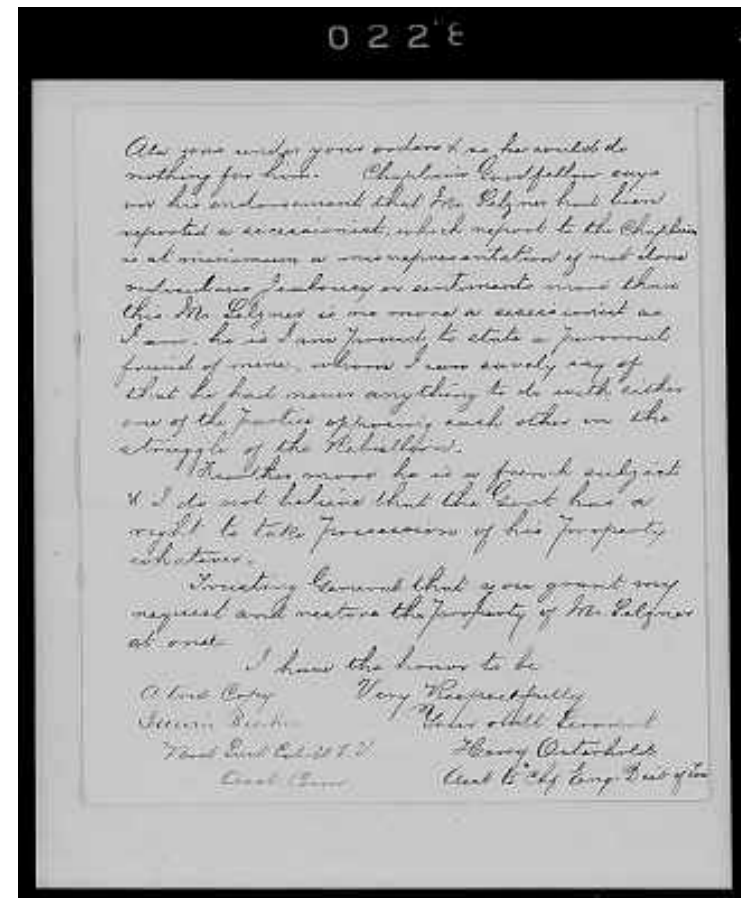 0228
your under your orders & so he could do
nothing for him. Chaplain Goodfellow says
on his endorsement that Mr. Pelzner had been
reported a secessionist, which report to the Chaplain
is at minimum a misrepresentation of
ridiculous Jealousy or sentiments more than
this Mr. Pelzner is no more a secessionist as
I am. he is I am proud, to state a personal
friend of mine, whom I can surely say of
that he had never anything to do with either
one of the Parties opposing each other in the
struggle of the Rebellion.
Further more he is a french subject
& I do not believe that the Govt has a
right to take Possession of his Property
whatever.
Trusting General that you grant my
request and restore the Property of Mr. Pelzner
at once
I have the honor to be
A true Copy Very Respectfully
Your obdt Servant
Henry Osterholt
Asst to Chf Eng. Dept of